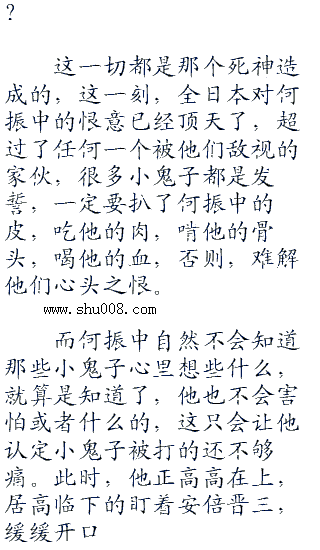 ?
这一切都是那个死神造
成的，这一刻，全日本对何
振中的恨意已经顶天了，超
过了任何一个被他们敌视的
家伙，很多小鬼子都是发
誓，一定要扒了何振中的
皮，吃他的肉，啃他的骨
头，喝他的血，否则，难解
他们心头之恨。
www.shu008.com
而何振中自然不会知道
那些小鬼子心里想些什么，
就算是知道了，他也不会害
怕或者什么的，这只会让他
认定小鬼子被打的还不够
痛。此时，他正高高在上，
居高临下的盯着安倍晋三，
缓缓开口